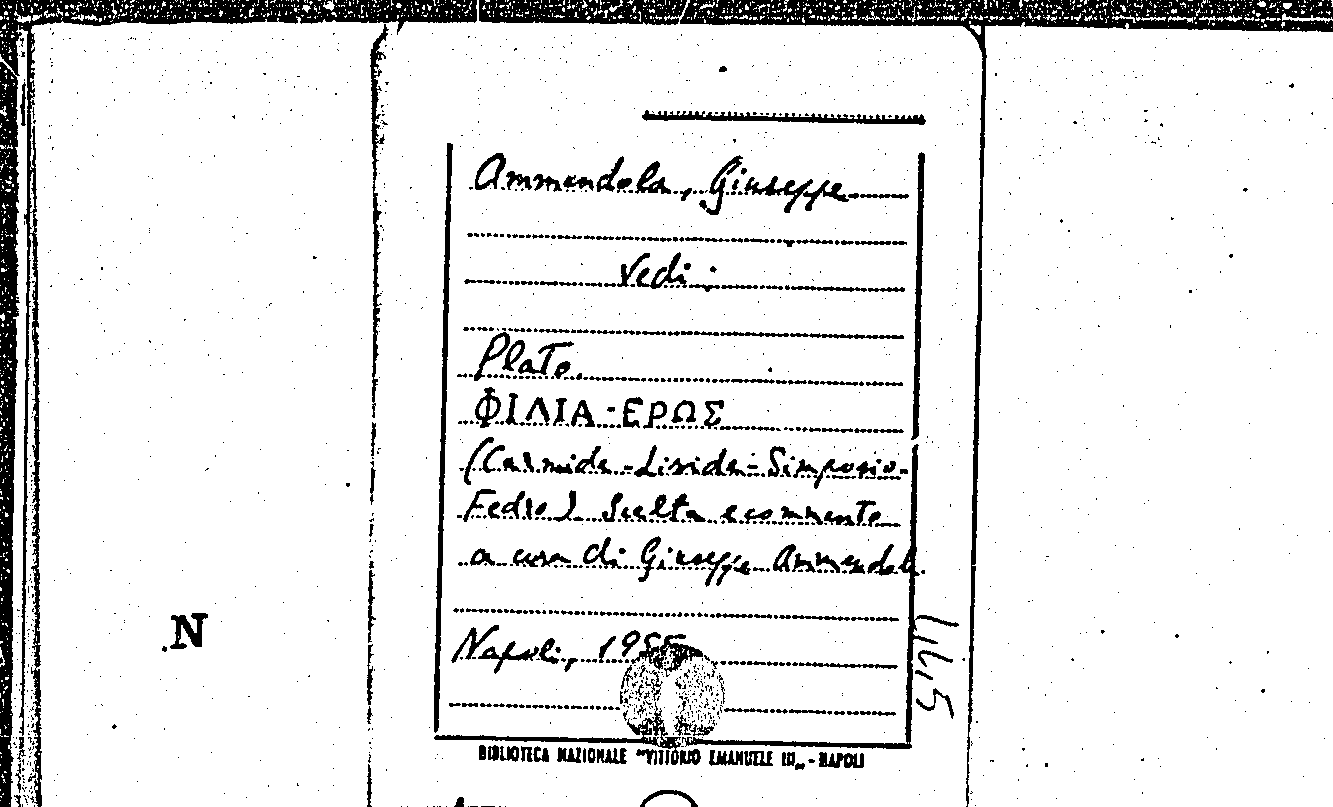 Ammendola, Giuseppe
Vedi:
Plato.
ΦΙΛΙΑ-ΕΡΩΣ
(Carmide-Liside-Simposio-
Fedro) Scelta e commento
a cura di Giuseppe Ammendola.
Napoli, 1955
N
BIBLIOTECA NAZIONALE "VITTORIO EMANUELE III„ - NAPOLI